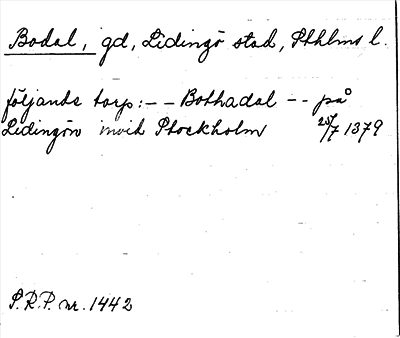 Bodal, gd, Lidingö stad, Sthlms l.
följande torp: -- Bothadal -- på
Lidingön invik Stockholm 25/7 1379
S.R.P. nr. 1442